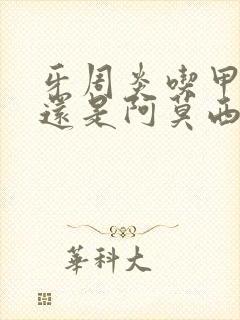 牙周炎喫甲
還是阿莫西
華科大